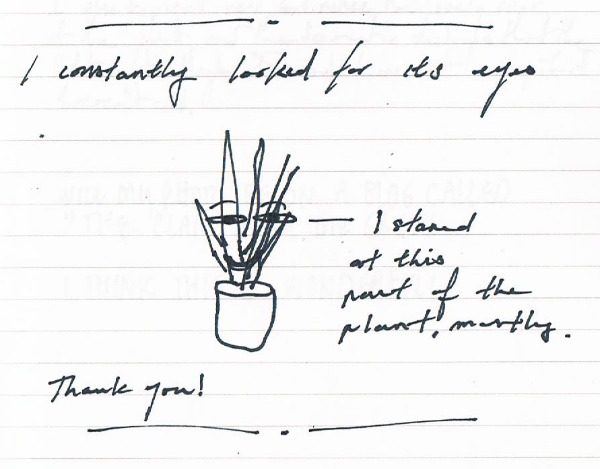 I constantly looked for its eyes
I stared
at this
part of the
plant, mostly.
Thank you!